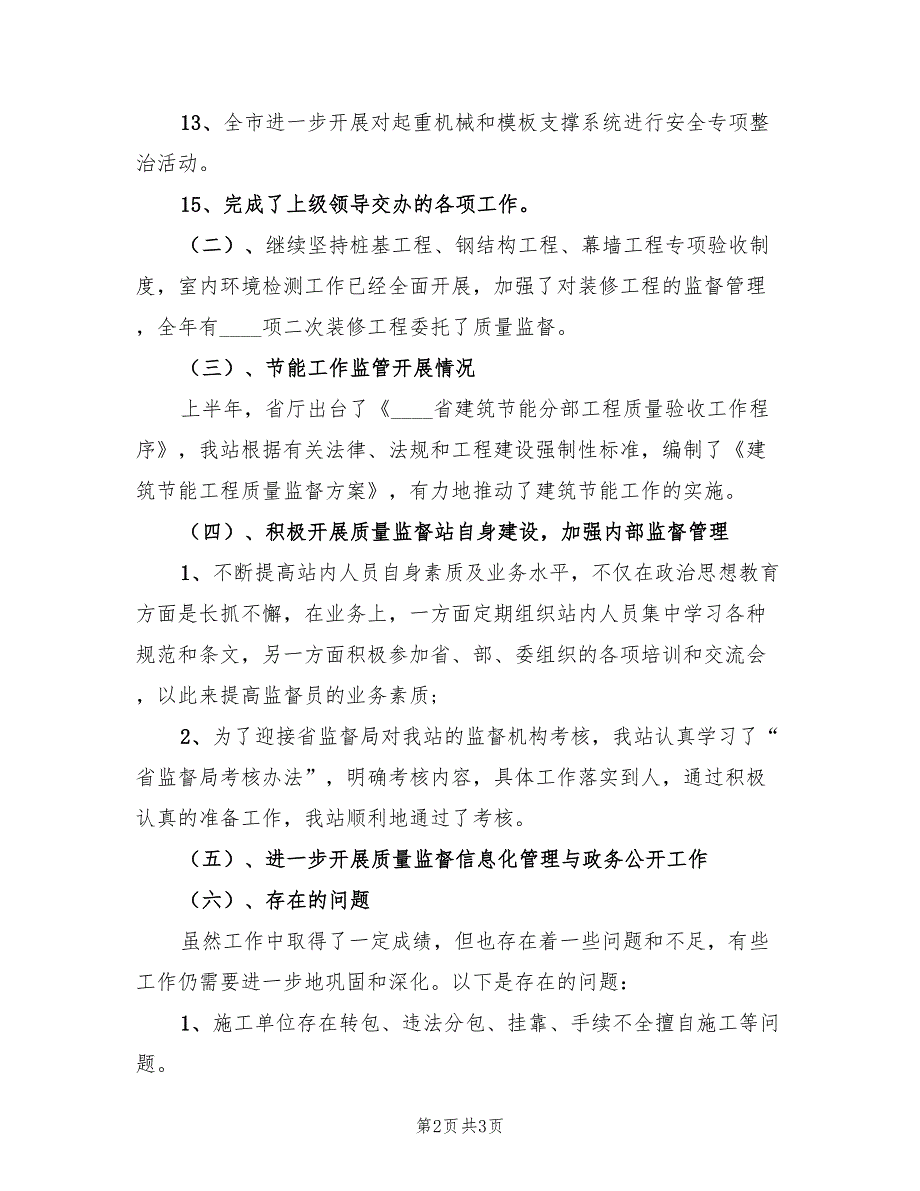 13、全市进一步开展对起重机械和模板支撑系统进行安全专项整
治活动。
15、完成了上级领导交办的各项工作。
（二）、继续坚持桩基工程、钢结构工程、幕墙工程专项验收制
度，室内环境检测工作已经全面开展，加强了对装修工程的监督管理
，全年有____项二次装修工程委托了质量监督。
（三）、节能工作监管开展情况
上半年，省厅出台了《____省建筑节能分部工程质量验收工作程
序》，我站根据有关法律、法规和工程建设强制性标准，编制了《建
筑节能工程质量监督方案》，有力地推动了建筑节能工作的实施。
（四）、积极开展质量监督站自身建设，加强内部监督管理
1、不断提高站内人员自身素质及业务水平，不仅在政治思想教育
方面是长抓不懈，在业务上，一方面定期组织站内人员集中学习各种
规范和条文，另一方面积极参加省、部、委组织的各项培训和交流会
，以此来提高监督员的业务素质;
2、为了迎接省监督局对我站的监督机构考核，我站认真学习了“
省监督局考核办法”，明确考核内容，具体工作落实到人，通过积极
认真的准备工作，我站顺利地通过了考核。
（五）、进一步开展质量监督信息化管理与政务公开工作
（六）、存在的问题
虽然工作中取得了一定成绩，但也存在着一些问题和不足，有些
工作仍需要进一步地巩固和深化。以下是存在的问题：
1、施工单位存在转包、违法分包、挂靠、手续不全擅自施工等问
题。
第2页 共3页